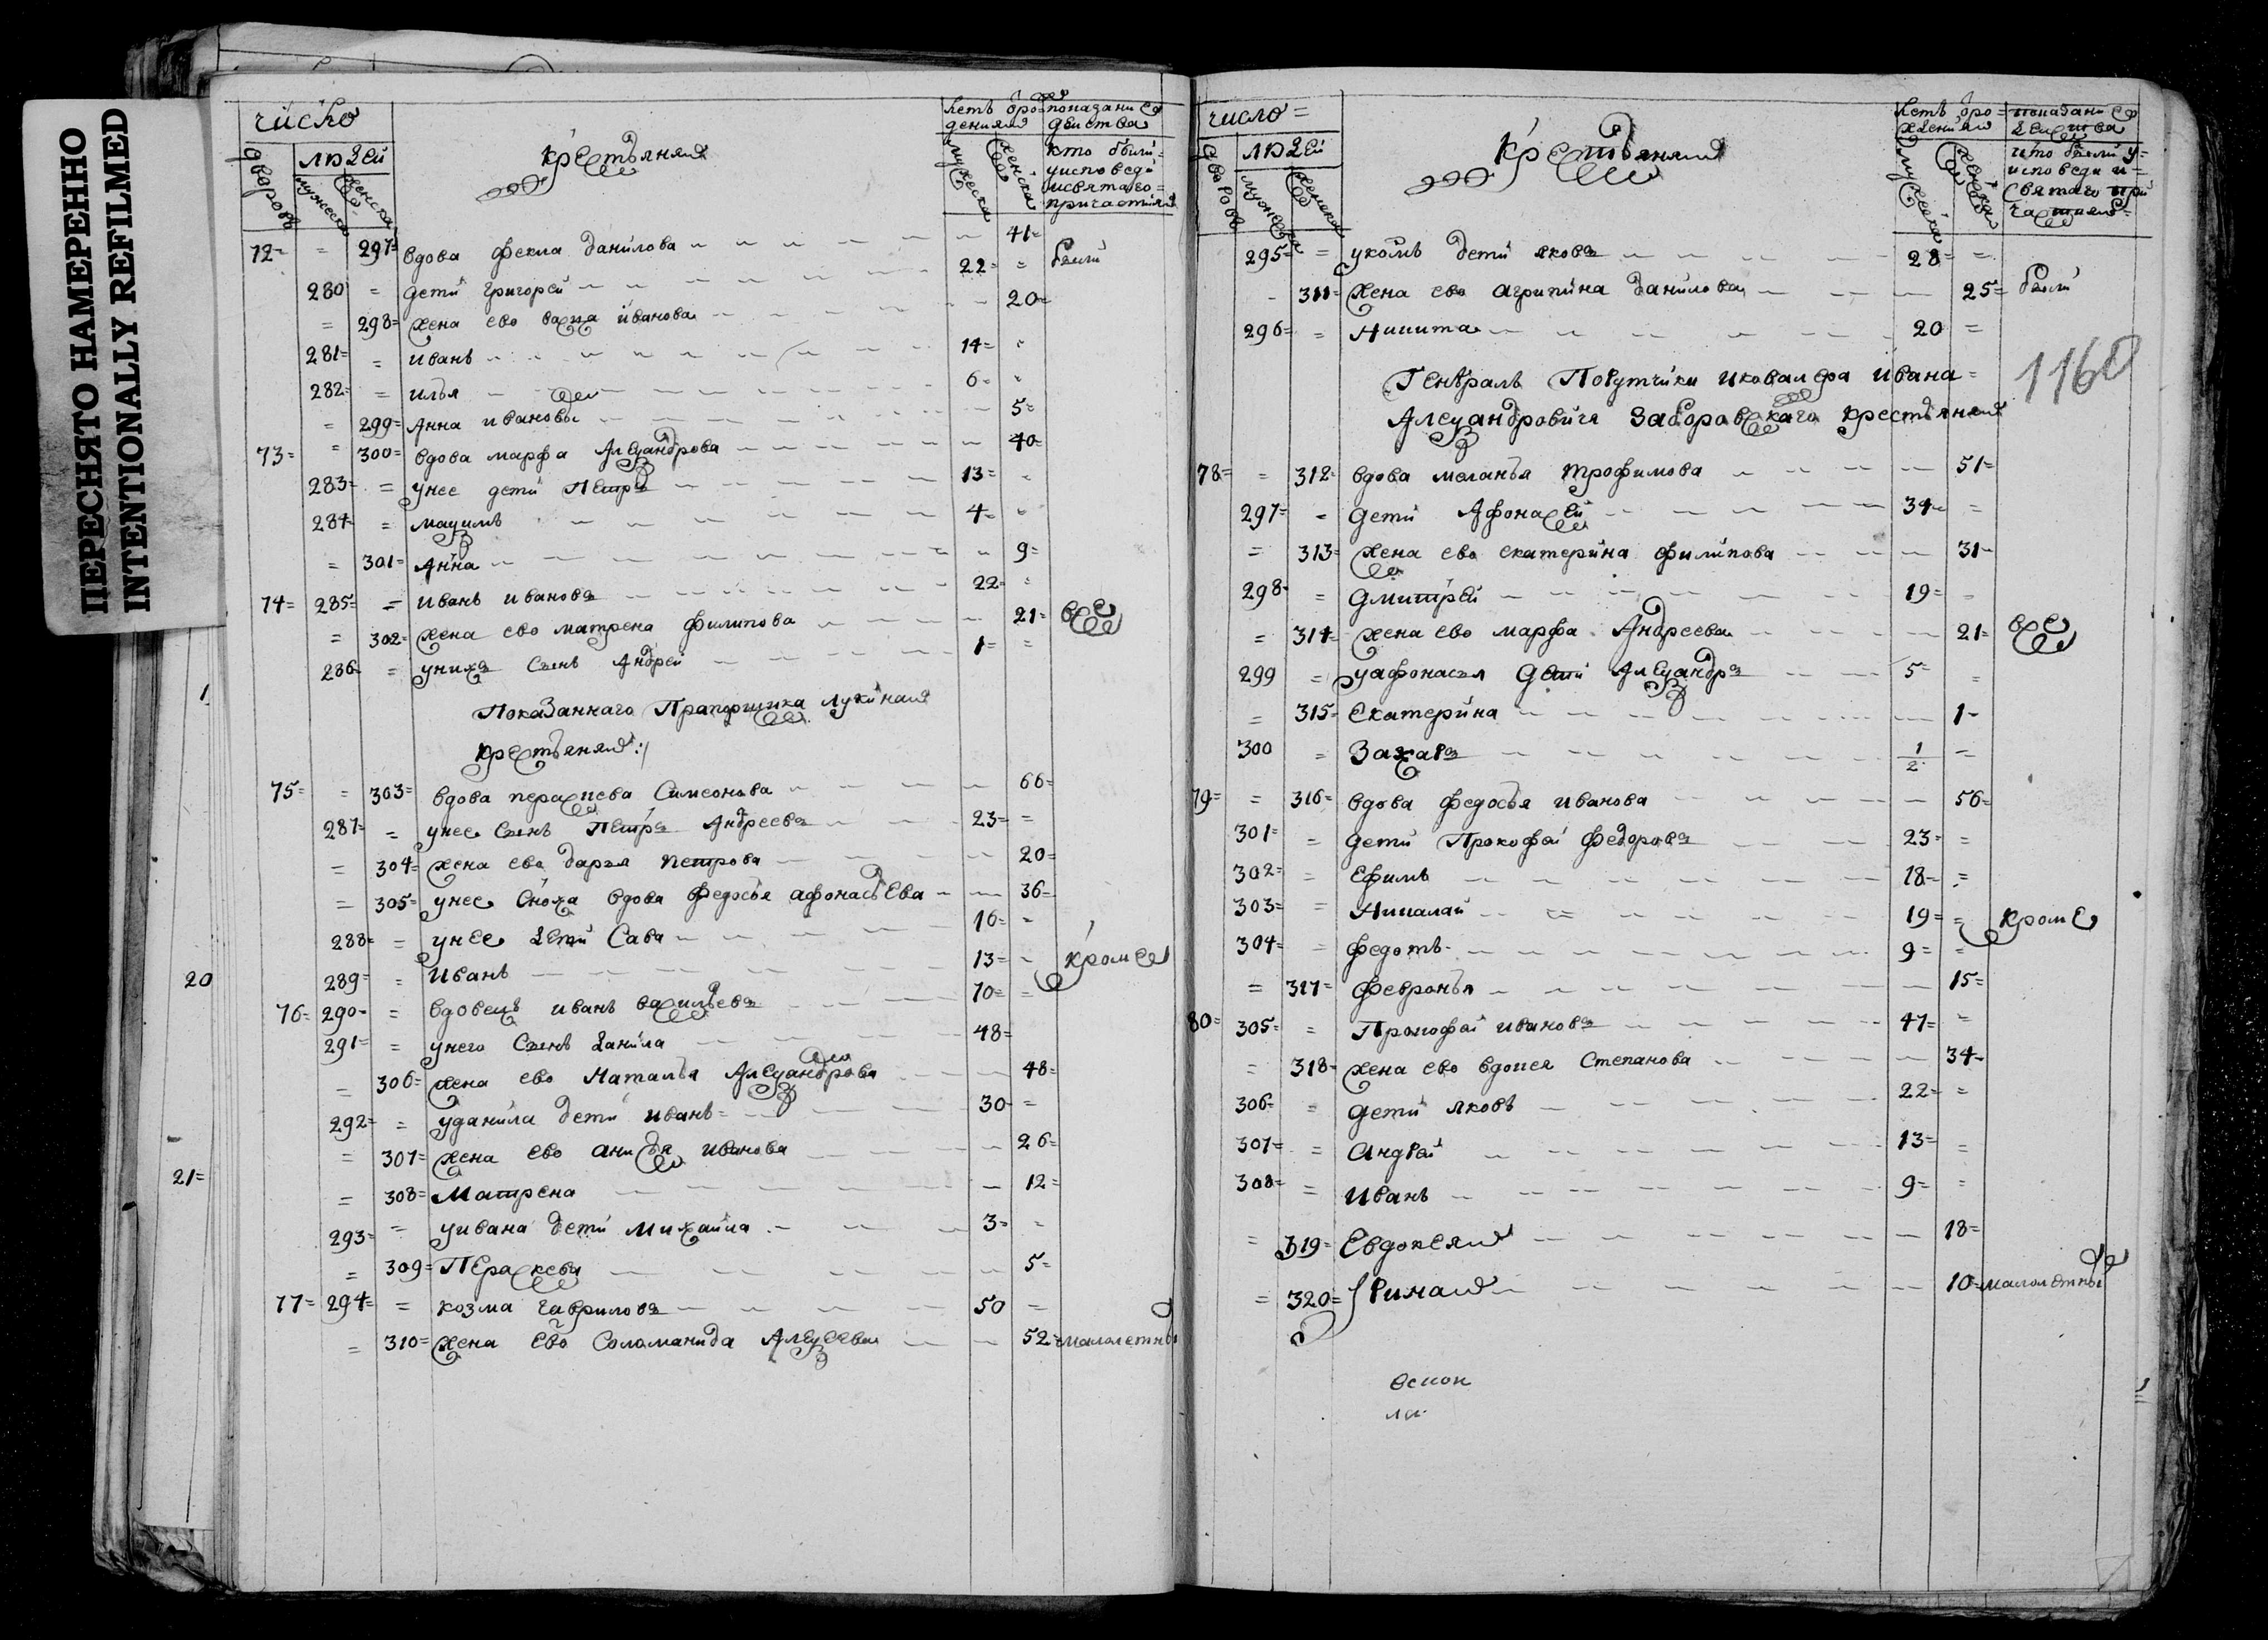 ПЕРЕСНЯТО НАМЕРЕННО
INTENTIONALLY REFILMED
20
21=
число
дворовъ
людей
мужеска
женска
крестьяня
летъ
кто были
уисповеди
исвятаго=
причастия
72= = 297= вдова фекла данилова 41=
280 = дети григорей 22= = были
= 298= жена ево васса иванова 20=
281= = иванъ 14= =
282= = илья 6= =
= 299= Анна ивановы 5=
73= = 300= вдова марфа Алеѯандрова 40=
283= = унее дети Петръ 13= =
284= = маѯимъ 4= =
= 301= Анна 9=
74= 285= = иванъ ивановъ 22= =
= 302= жена ево матрена филипова 21= все
286= = унихъ сынъ Андрей 1= =
Показаннаго Прапорщика Лукина
крестьяня :/
75= = 303= вдова параскева Симеонова 66=
287= = унее сынъ Петръ Андреевъ 23= =
= 304= жена ево дарья петрова 20=
= 305= унее сноха вдова федосья афонасьева 36=
288= = унее дети Сава 16= =
289= = иванъ 13= = кроме
76= 290= = вдовецъ иванъ васильевъ 70= =
291= = унего сынъ данила 48=
= 306= жена ево наталья Алеѯандрова 48=
292= = уданила дети иванъ= 30= =
= 307= жена ево анисья иванова 26=
= 308= Матрена 12=
293= = уивана дети михаила 3= =
= 309= Параскева 5=
77= 294= = козма гавриловъ 50 =
= 310= жена ево Соломанида Алеѯеева 52= малолетны
число=
дворовъ
людей
мужеска
женска
крестьяня
летъ
были у=
исповеди и=
святаго при
частия=
295= = укозмъ дети яковъ 28= =
= 311= жена ево агрипина данилова 25= были
296= = Никита 20 =
1160
Генералъ Порутчика икавалера ивана=
Алеѯандровича Заборовскаго крестьяня
78= = 312= вдова маланья трофимова 51=
297= = дети Афонасей 34= =
= 313= жена ево екатерина филипова 31=
298= = дмитрей 19= =
= 314= жена ево марфа Андреева 21= все
299 = уафонасья дети Алеѯандръ 5= =
= 315= Екатерина 1=
300 = Захаръ 1/2 =
79= = 316= вдова федосья иванова 56=
301= = дети Прокофей федоровъ 23= =
302= = Ефимъ 18= =
303= = Николай 19= = кроме
304= = федотъ 9= =
= 317= февронья 15=
80= 305= = Прокофей ивановъ 47= =
= 318= жена ево вдокея Степанова 34=
306= = дети яковъ 22= =
307= = андрей 13= =
308= = иванъ 9= =
= 319= Евдокея 18=
= 320= Ирина 10= малолетны